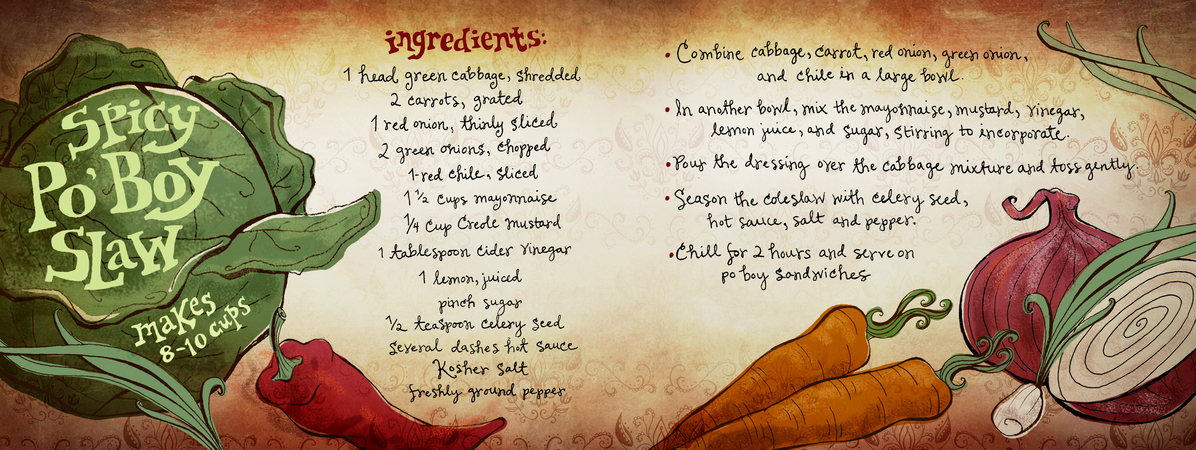 Spicy
Po' Boy
Slaw
makes
8-10 cups
ingredients:
1 head green cabbage, shredded
2 carrots, grated
1 red onion, thinly sliced
2 green onions, chopped
1 red chile, sliced
1 ½ cups mayonnaise
¼ cup Creole mustard
1 tablespoon cider vinegar
1 lemon, juiced
pinch sugar
½ teaspoon celery seed
several dashes hot sauce
Kosher salt
freshly ground pepper
• Combine cabbage, carrot, red onion, green onion,
and chile in a large bowl.
• In another bowl, mix the mayonnaise, mustard, vinegar,
lemon juice, and sugar, stirring to incorporate.
• Pour the dressing over the cabbage mixture and toss gently.
• Season the coleslaw with celery seed,
hot sauce, salt and pepper.
• Chill for 2 hours and serve on
po boy sandwiches